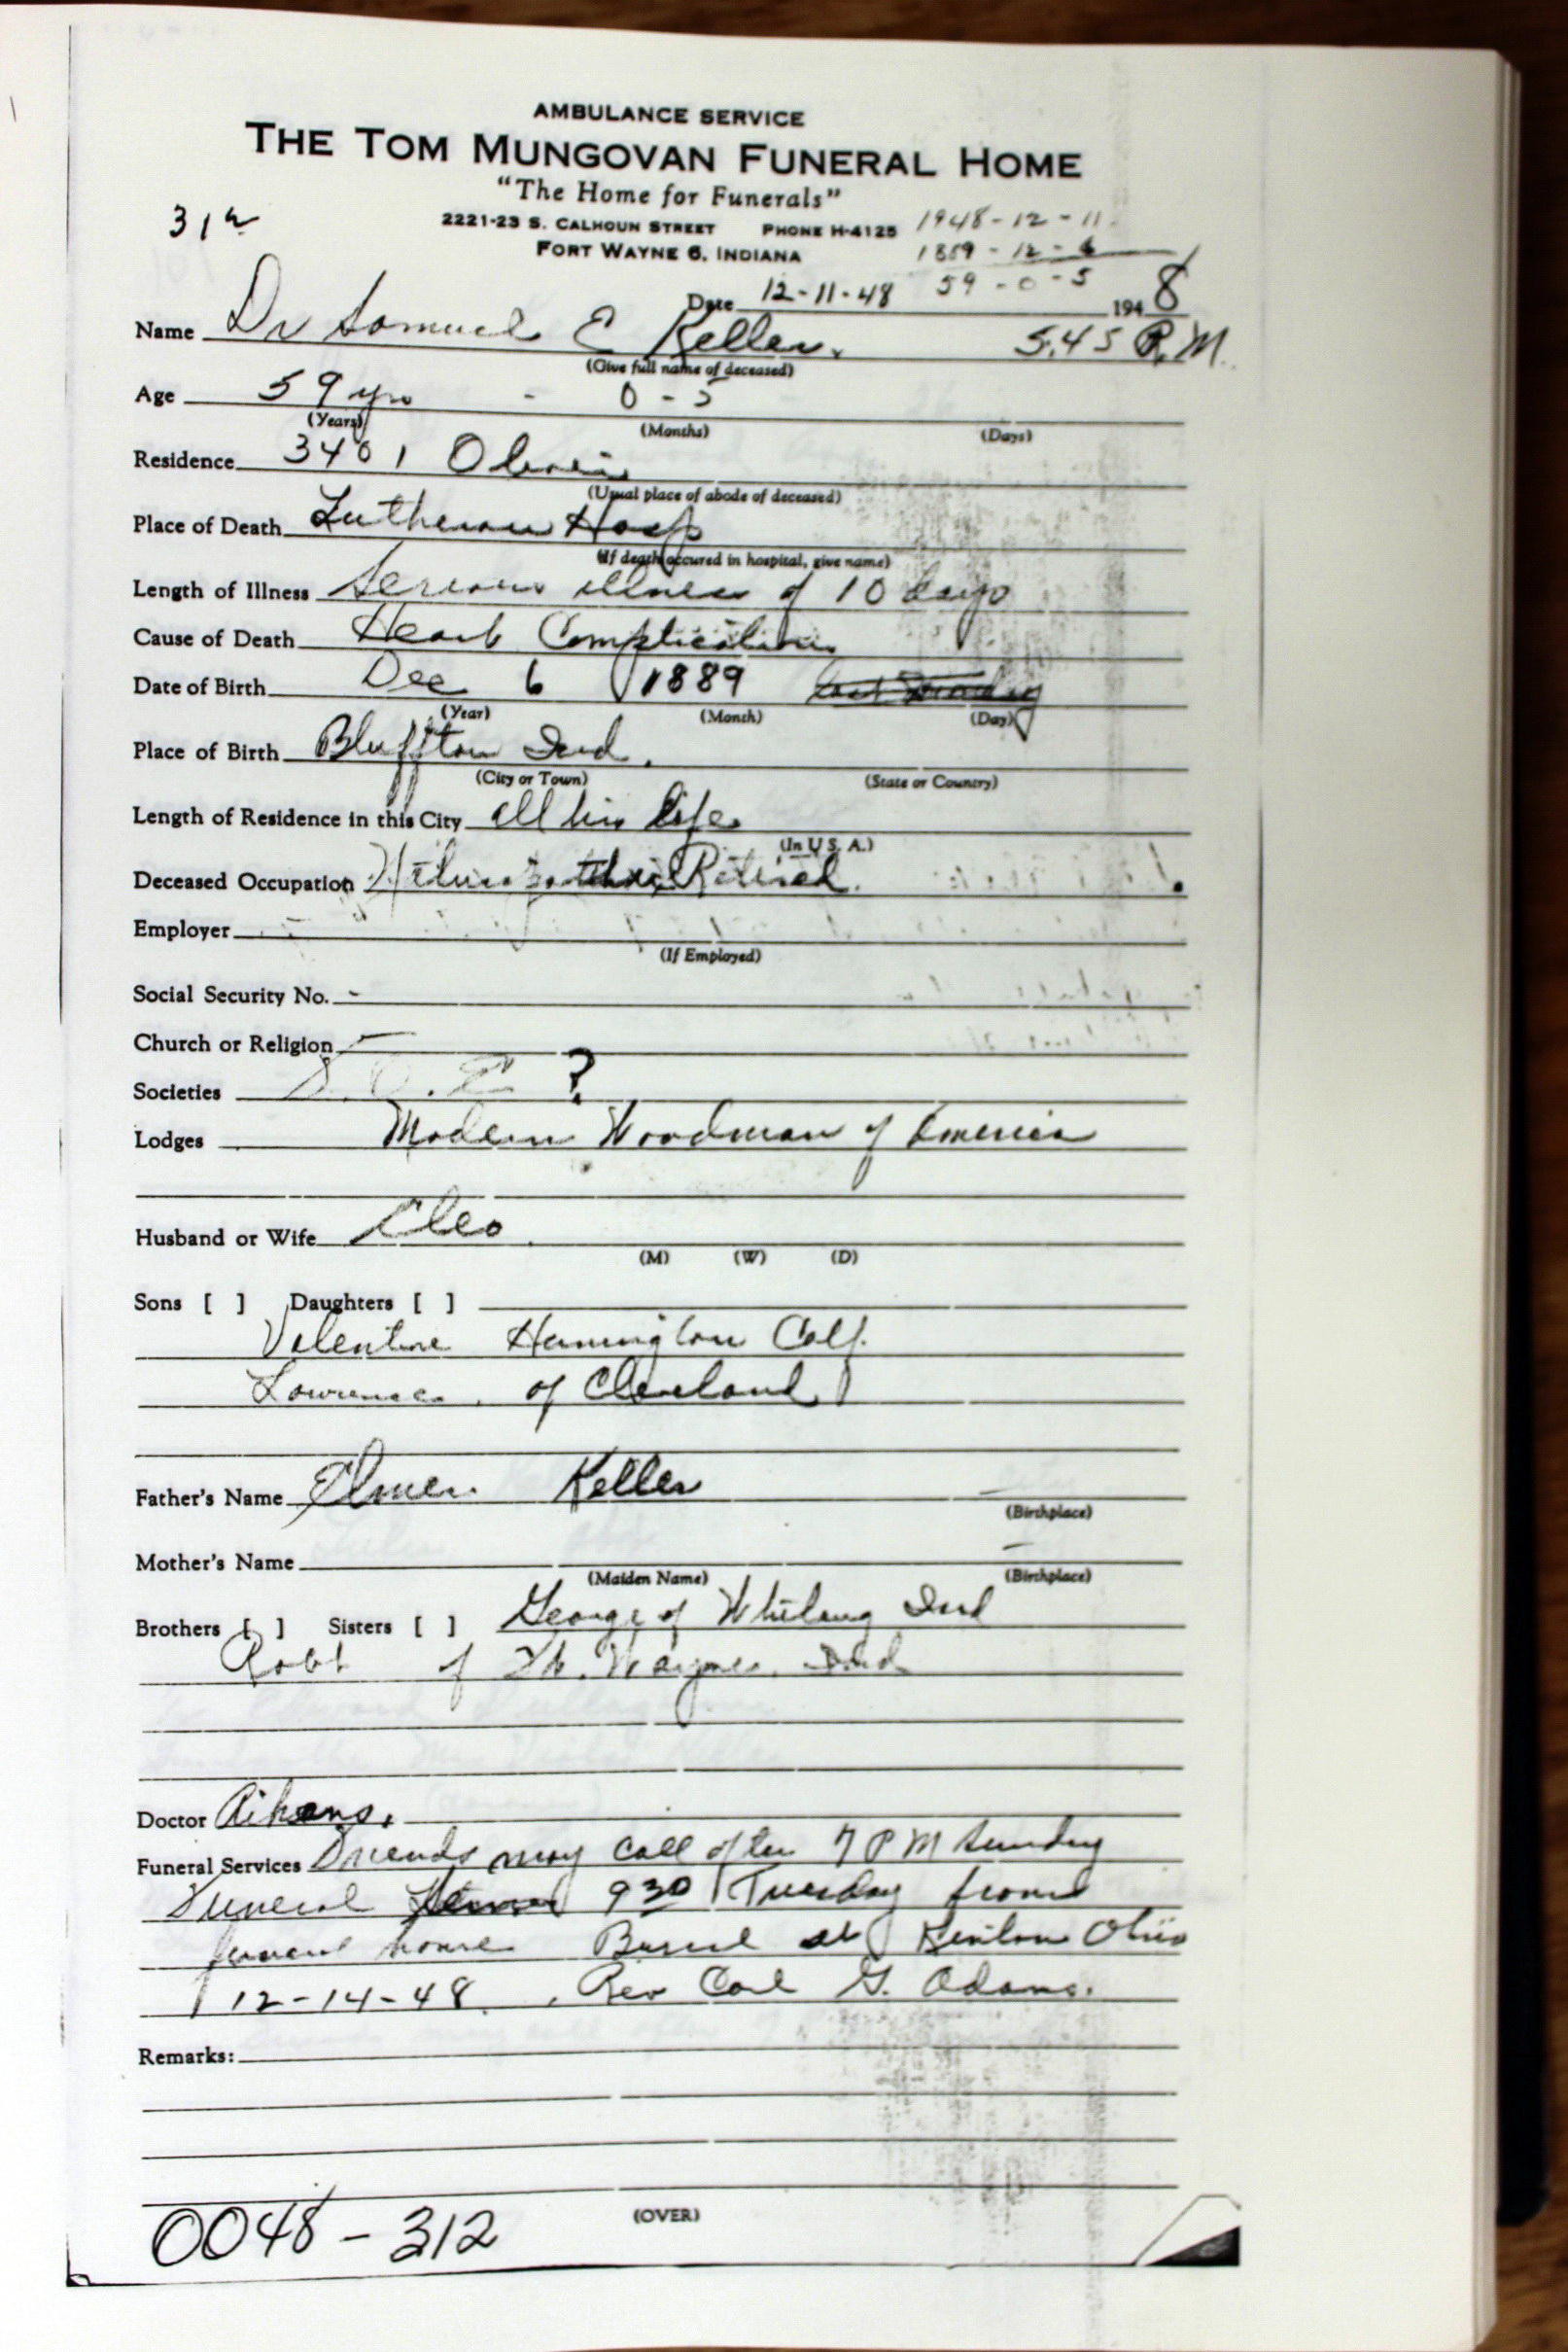 AMBULANCE SERVICE
THE TOM MUNGOVAN FUNERAL HOME
"The Home for Funerals"
2221-23 S. CALHOUN STREET PHONE H-4125 1948-12-11
FORT WAYNE 6, INDIANA 1889-12-6
312
Date 12-11-48 59-0-5 1948
Name Dr Samuel E Keller. 5.45 P.M.
(Give full name of deceased)
Age 59 yrs - 0-5
(Years) (Months) (Days)
Residence 3401
(Usual place of abode of deceased)
Place of Death Lutheran Hosp
(If death occured in hospital, give name)
Length of Illness Serious illness of 10 days
Cause of Death Heart Complications
Date of Birth Dec 6 1889
(Year) (Month) (Day)
Place of Birth Bluffton Ind.
(City or Town) (State or Country)
Length of Residence in this City all his life
(In U. S. A.)
Deceased Occupation Retired.
Employer
(If Employed)
Social Security No. -
Church or Religion -
Societies ?
Lodges Modern Woodman of America
Husband or Wife Cleo
(M) (W) (D)
Sons [ ] Daughters [ ]
Valentine Calf.
Lawrence, of Cleveland
Father's Name Elmer Keller -
(Birthplace)
Mother's Name -
(Maiden Name) (Birthplace)
Brothers [ ] Sisters [ ] George of Ind
Robt of Ft. Wayne, Ind
Doctor
Funeral Services Friends may call after 7 PM Sunday
Funeral 9 30 Tuesday from
funeral home Burial at Kenton Ohio
12-14-48, Rev Carl G. Adams.
Remarks:
(OVER)
0048-312